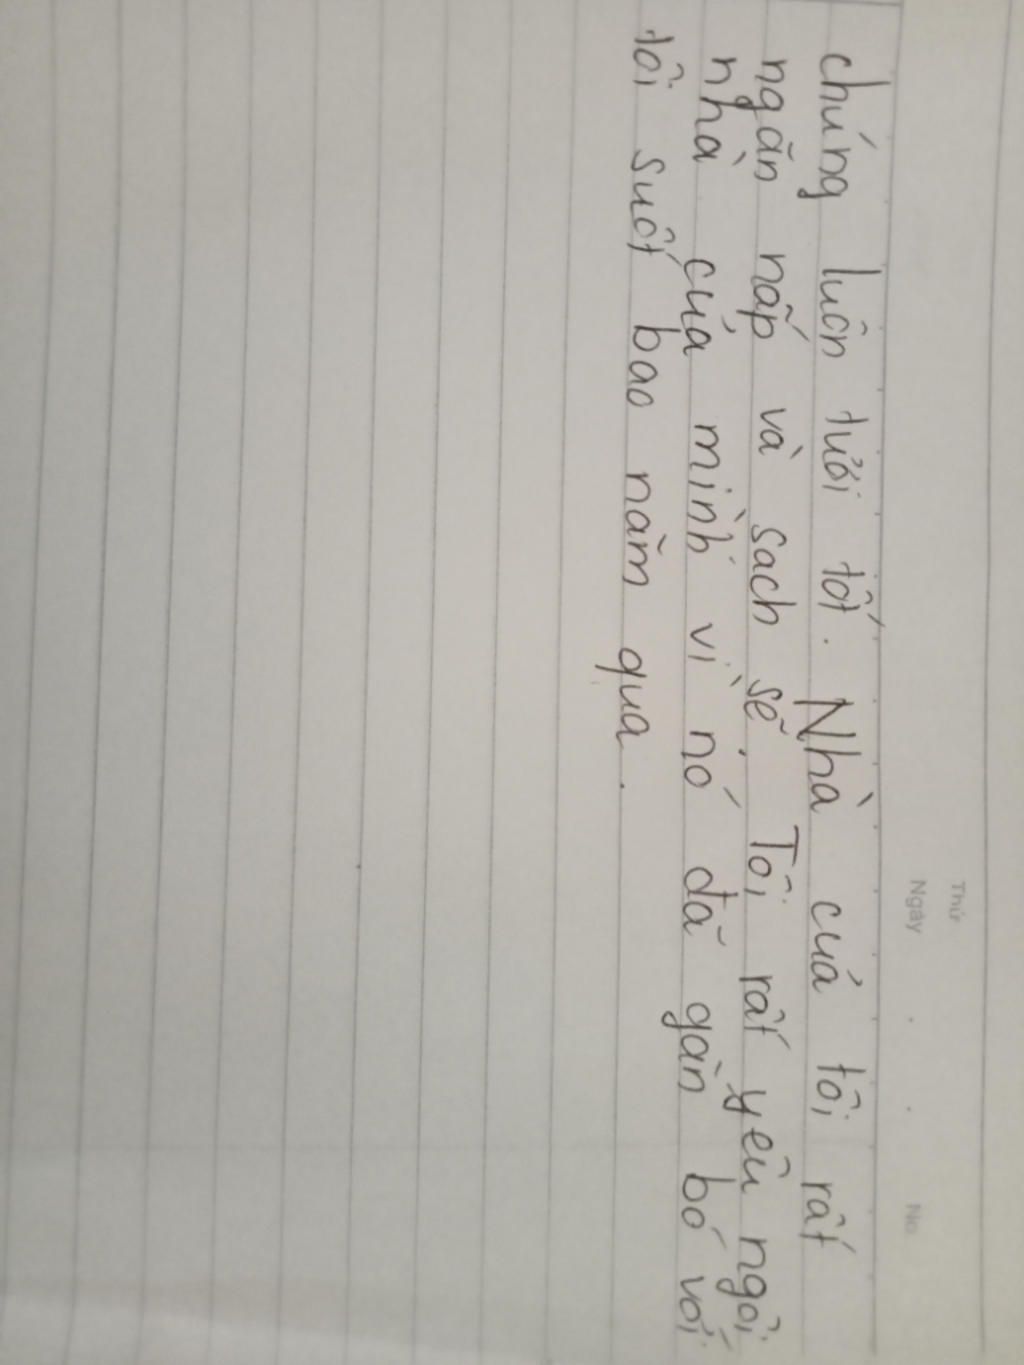 Thứ
Ngày . . No.
chúng luôn tươi tốt. Nhà của tôi rất
ngăn nắp và sạch sẽ. Tôi rất yêu ngôi
nhà của mình vì nó đã gắn bó với
tôi suốt bao năm qua.